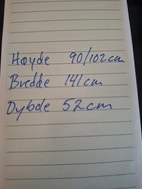 Høyde 90/102cm
Bredde 141 cm
Dybde 52cm